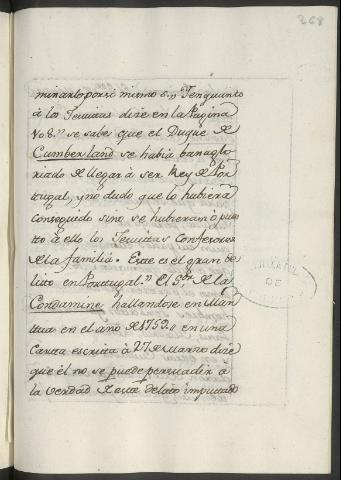 268
minarlo por si mismo &.ª Yen quanto
á los Jesuitas dize en la Pagina
108.ª se sabe que el Duque de
Cumberland se habia banaglo
riado de llegar à ser Rey de Por
tugal, yno dudo que lo hubiera
conseguido sino se hubieran òpues
tto à ello los Jesuitas Confesores
de la familia. Este es el gran de
lito en Portugal." El S.or de la
Condamine hallandose en Man
tua en el año de 1759., en una
Carta escrita à 27 de Marzo dize
que èl no se puede persuadir à
la verdad de este delito imputado
DE